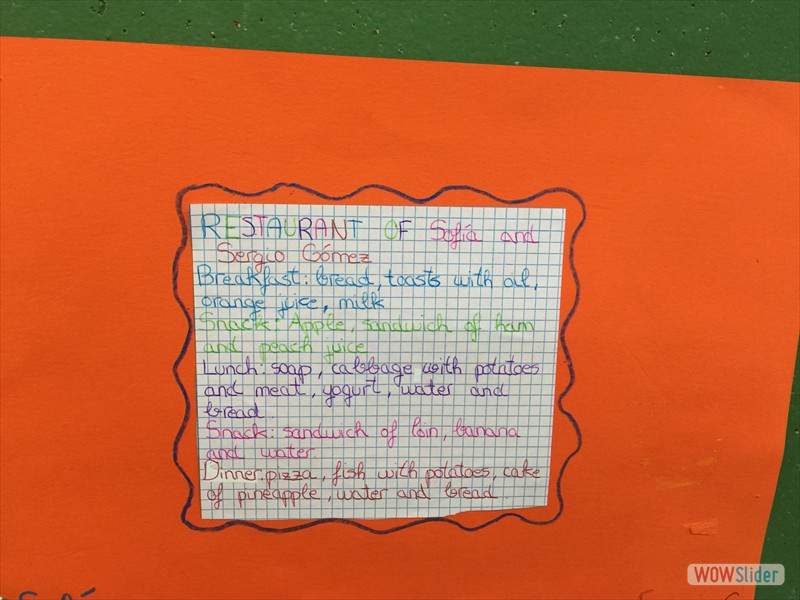 RESTAURANT OF Sofía and
Sergio Gómez
Breakfast: bread, toasts with oil,
orange juice, milk
Snack: Apple, sandwich of ham
and peach juice
Lunch: soap, cabbage with potatoes
and meat, yogurt, water and
bread
Snack: sandwich of loin, banana
and water
Dinner: pizza, fish with potatoes, cake
of pineapple, water and bread
WOWSlider